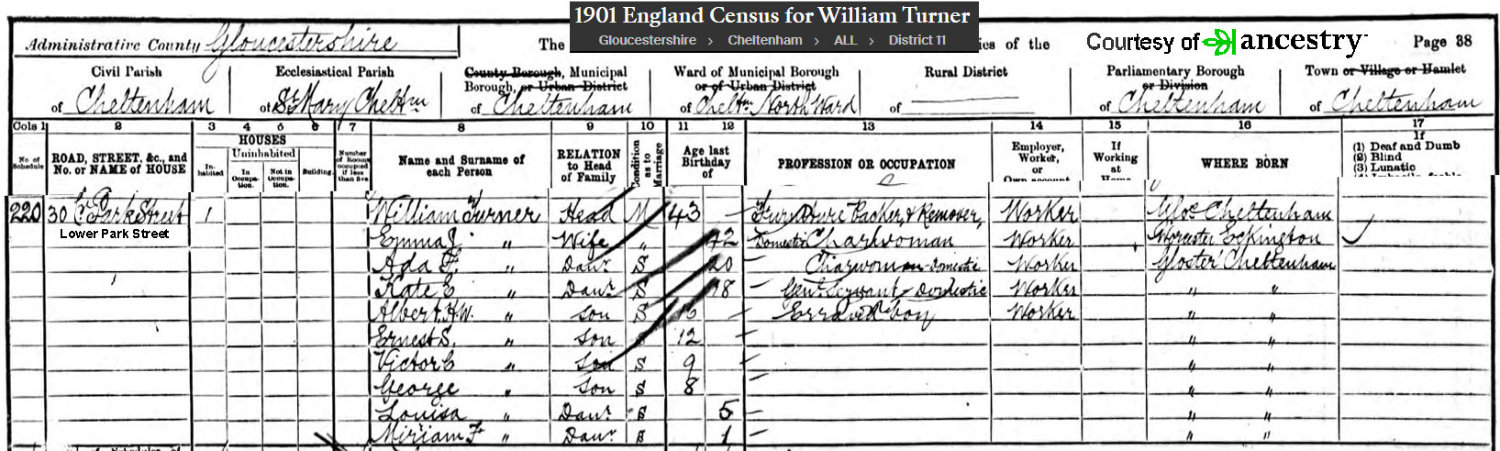 1901 England Census for William Turner
Gloucestershire > Cheltenham > ALL > District 11
Administrative County Gloucestershire The ies of the Courtesy of ancestry Page 38
Civil Parish Ecclesiastical Parish County Borough, Municipal Borough, or Urban District Ward of Municipal Borough or of Urban District Rural District Parliamentary Borough or Division Town or Village or Hamlet
of Cheltenham of St Mary Cheltm of Cheltenham of Cheltm North Ward of of Cheltenham of Cheltenham
Cols 1 2 3 4 5 6 7 8 9 10 11 12 13 14 15 16 17
No of Schedule ROAD, STREET, &c., and No. or NAME of HOUSE HOUSES Inhabited Uninhabited In Occupation. Not in Occupation. Building. Number of Rooms occupied if less than five Name and Surname of each Person RELATION to Head of Family Condition as to Marriage Age last Birthday of PROFESSION OR OCCUPATION Employer, Worker, or Own account If Working at Home WHERE BORN If (1) Deaf and Dumb (2) Blind (3) Lunatic
220 30 Park Street 1 William Turner Head M 43 Furniture Packer & Remover, Worker Glos Cheltenham
Lower Park Street
Emma J. " Wife " 42 Domestic Charwoman Worker Worcester Eckington
Ada F. " Daur S 20 Charwoman Domestic Worker Gloster Cheltenham
Kate E " Daur S 18 Genl Servant Domestic Worker " "
Albert H.W. " Son S 16 Errand boy Worker " "
Ernest S. " Son 12 " "
Victor C " Son S 9 " "
George " Son S 8 " "
Louisa " Daur S 5 " "
Miriam F " Daur S 1 " "